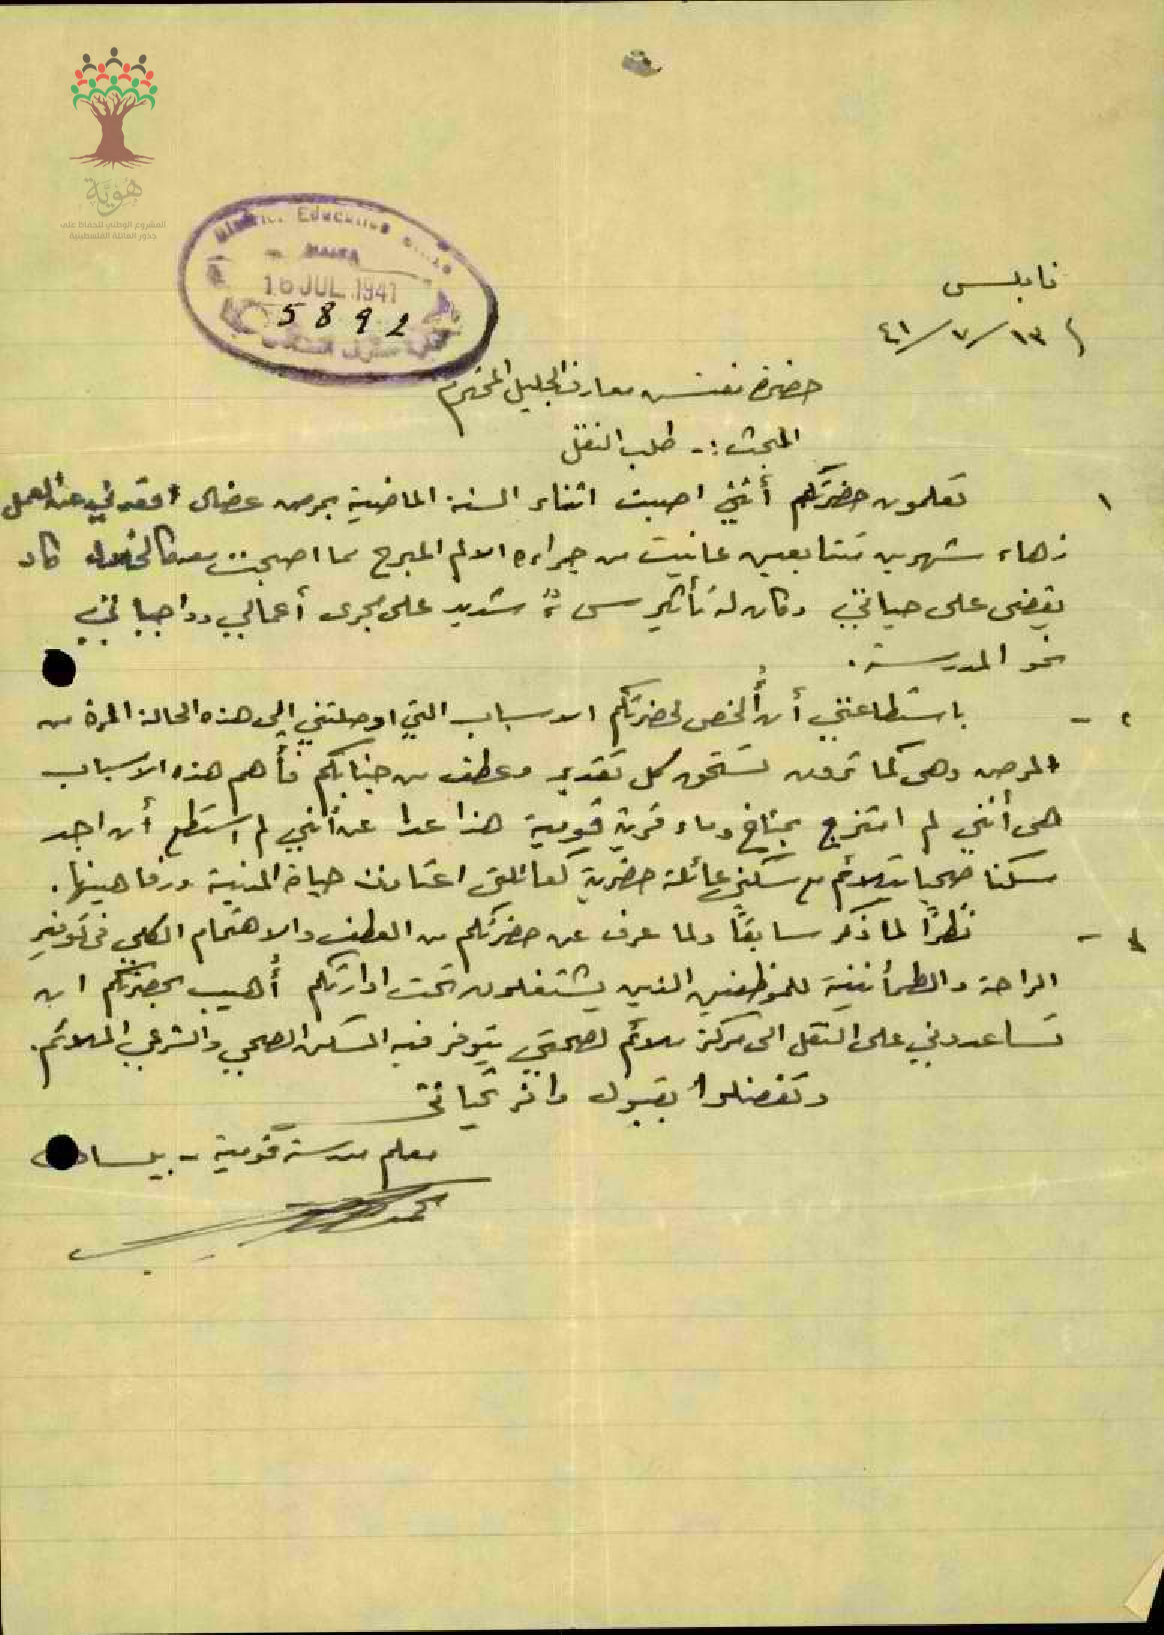 هوية
المشروع الوطني للحفاظ على
جذور العائلة الفلسطينية
District Education Office
HAIFA
16 JUL 1941
5892
نابلس
١٣/٧/٤١
حضرة مفتش معارف الجليل المحترم
المبحث :- طلب النقل
١ تعلمون حضرتكم أنني اصبت اثناء السنة الماضية بمرض عضال افقدني عن العمل
زهاء شهرين متتابعين عانيت من جراءه الالم المبرح مما اصبحت كاد
يقضى على حياتي وكان له تأثير سيء شديد على مجرى أعمالي وواجباتي
نحو المدرسة .
٢ - باستطاعتي أن أُلخص لحضرتكم الاسباب التي اوصلتني إلى هذه الحالة المرة من
المرض وهي كما ترون تستحق كل تقدير وعطف من جنابكم فأهم هذه الاسباب
هي أنني لم امتزج بمناخ وماء قرية قومية هذا عدا عن أنني لم استطع أن اجد
سكنا صحيا يتلائم مع سكنى عائلة حضرية كعائلتي اعتادت حياة المدنية ورفاهيتها .
٣ - نظرًا لما ذكر سابقًا ولما عرف عن حضرتكم من العطف والاهتمام الكلي في توفير
الراحة والطمأنينة للموظفين الذين يشتغلون تحت ادارتكم أُهيب بحضرتكم ان
تساعدوني على النقل الى مركز ملائم لصحتي يتوفر فيه المسكن الصحي والشرعي الملائم .
وتفضلوا بقبول وافر تحياتي
معلم مدرسة قومية - بيسان